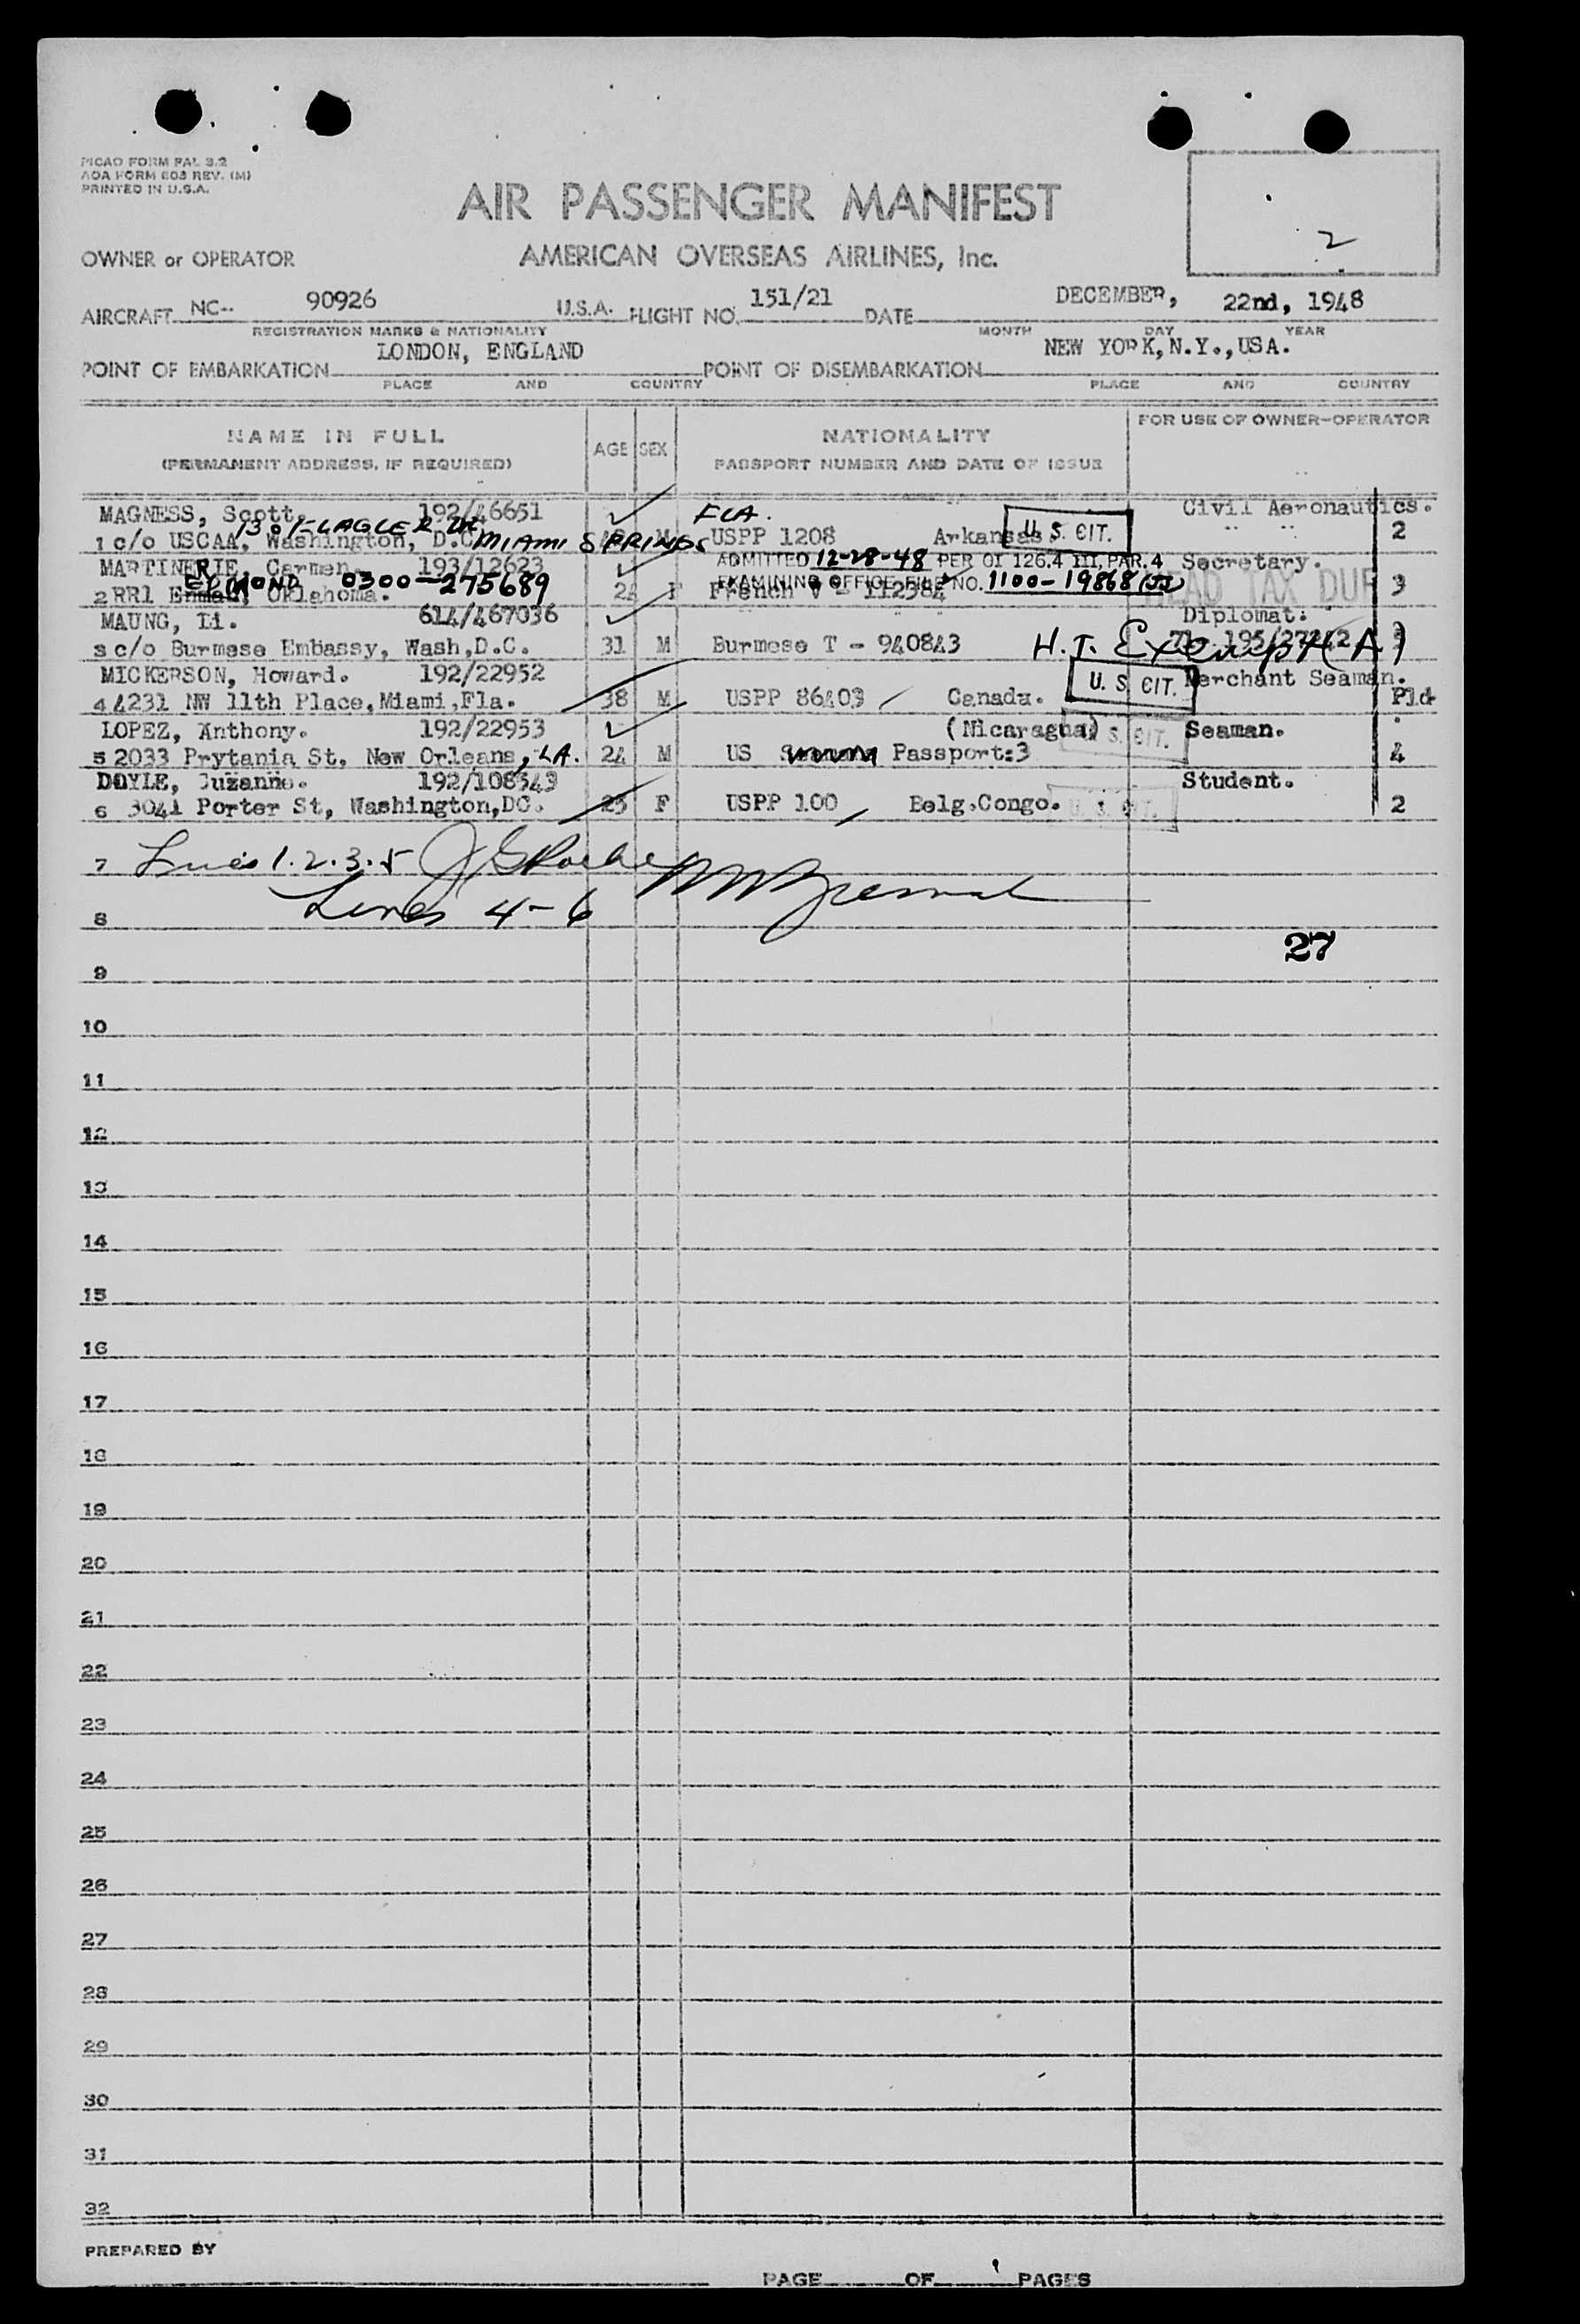 PICAO FORM PAL 3.2
AOA FORM 803 REV. (M)
PRINTED IN U.S.A.
AIR PASSENGER MANIFEST
2
OWNER or OPERATOR AMERICAN OVERSEAS AIRLINES, Inc.
AIRCRAFT NC-- 90926 U.S.A. FLIGHT NO. 151/21 DATE DECEMBER, 22nd, 1948
REGISTRATION MARKS & NATIONALITY MONTH DAY YEAR
POINT OF EMBARKATION LONDON, ENGLAND POINT OF DISEMBARKATION NEW YORK, N.Y., USA.
PLACE AND COUNTRY PLACE AND COUNTRY
NAME IN FULL AGE SEX NATIONALITY FOR USE OF OWNER-OPERATOR
(PERMANENT ADDRESS, IF REQUIRED) PASSPORT NUMBER AND DATE OF ISSUE
MAGNESS, Scott. 192/46651 FLA. Civil Aeronautics.
FLAGLER DR MIAMI SPRINGS
1 c/o USCAA, Washington, D.C. M USPP 1208 Arkansas. U. S. CIT. 2
MARTINERIE, Carmen. 193/12623 ADMITTED 12-28-48 PER OI 126.4 III, PAR. 4 Secretary.
EDMOND 0300-275689 EXAMINING OFFICE FILE NO. 1100-19868 HEAD TAX DUE
2 RR1 Oklahoma. F French V - 112384 3
MAUNG, 614/467036 Diplomat:
3 c/o Burmese Embassy, Wash,D.C. 31 M Burmese T - 940843 H.T. Exempt (A)
MICKERSON, Howard. 192/22952 U. S. CIT. Merchant Seaman.
4 4231 NW 11th Place, Miami, Fla. 38 M USPP 86403 Canada. Pld
LOPEZ, Anthony. 192/22953 (Nicaragua) U. S. CIT. Seaman.
5 2033 Prytania St, New Orleans, LA. 24 M US Passport:3 4
DOYLE, Suzanne. 192/108543 Student.
6 3041 Porter St, Washington,DC. 25 F USPP 100 Belg.Congo. U. S. CIT. 2
7 Lines 1.2.3.5
8 Lines 4-6
27
9
10
11
12
13
14
15
16
17
18
19
20
21
22
23
24
25
26
27
28
29
30
31
32
PREPARED BY
PAGE OF PAGES